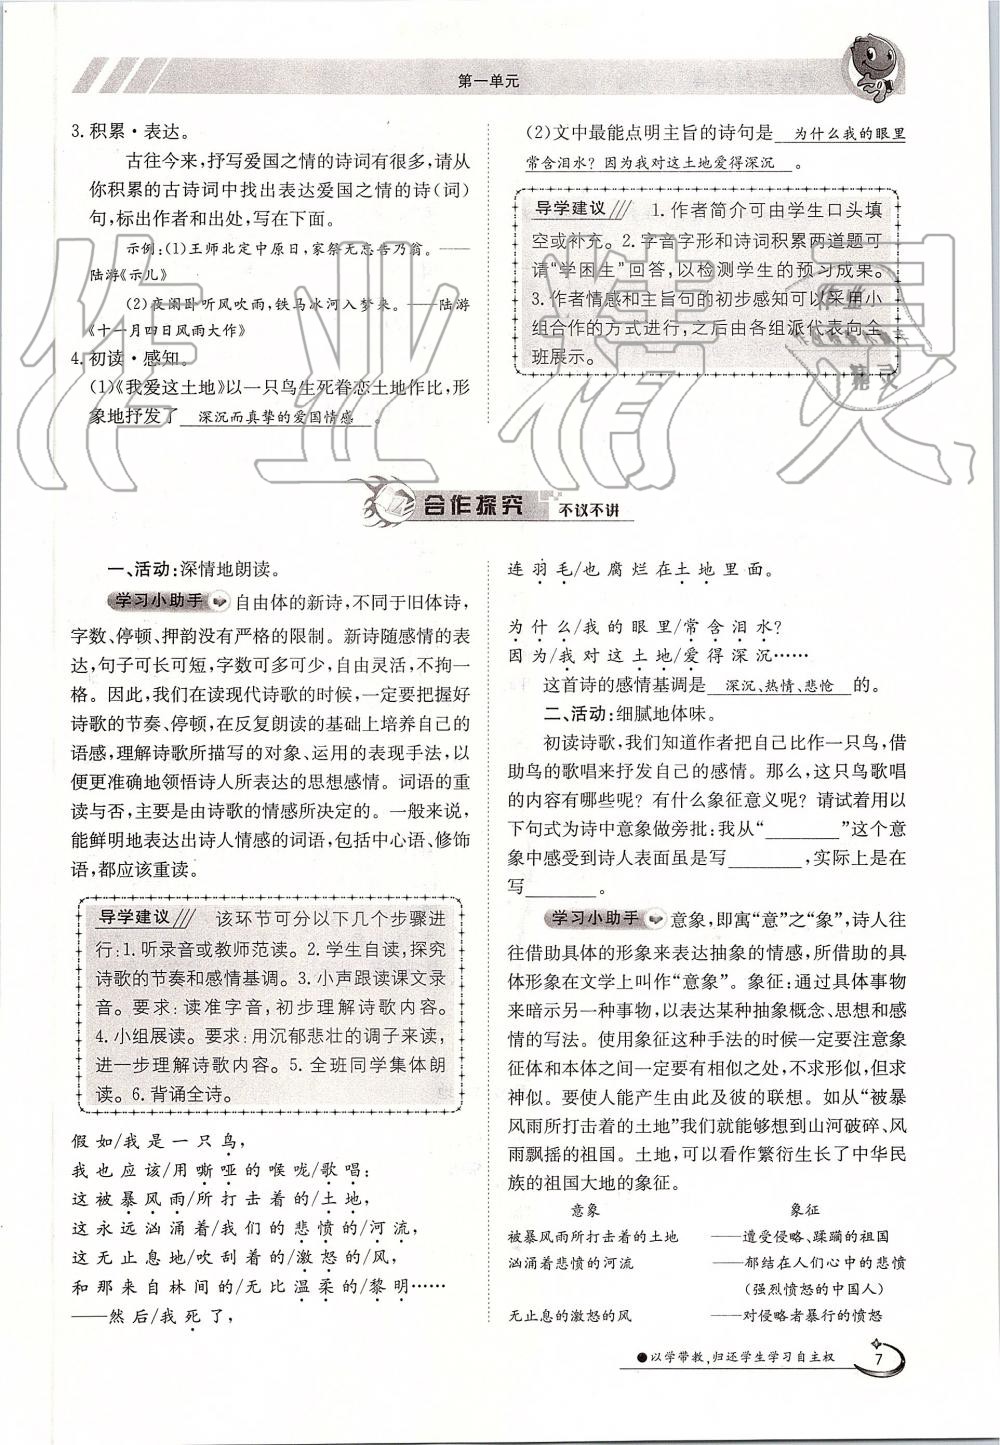 第一单元
3. 积累·表达。
古往今来,抒写爱国之情的诗词有很多,请从
你积累的古诗词中找出表达爱国之情的诗(词)
句,标出作者和出处,写在下面。
示例:(1)王师北定中原日,家祭无忘告乃翁。——
陆游《示儿》
(2)夜阑卧听风吹雨,铁马冰河入梦来。——陆游
《十一月四日风雨大作》
4. 初读·感知。
(1)《我爱这土地》以一只鸟生死眷恋土地作比,形
象地抒发了 深沉而真挚的爱国情感 。
(2)文中最能点明主旨的诗句是 为什么我的眼里
常含泪水?因为我对这土地爱得深沉 。
导学建议 1. 作者简介可由学生口头填
空或补充。2. 字音字形和诗词积累两道题可
请“学困生”回答,以检测学生的预习成果。
3. 作者情感和主旨句的初步感知可以采用小
组合作的方式进行,之后由各组派代表向全
班展示。
合作探究 不议不讲
一、活动:深情地朗读。
学习小助手 自由体的新诗,不同于旧体诗,
字数、停顿、押韵没有严格的限制。新诗随感情的表
达,句子可长可短,字数可多可少,自由灵活,不拘一
格。因此,我们在读现代诗歌的时候,一定要把握好
诗歌的节奏、停顿,在反复朗读的基础上培养自己的
语感,理解诗歌所描写的对象、运用的表现手法,以
便更准确地领悟诗人所表达的思想感情。词语的重
读与否,主要是由诗歌的情感所决定的。一般来说,
能鲜明地表达出诗人情感的词语,包括中心语、修饰
语,都应该重读。
导学建议 该环节可分以下几个步骤进
行:1. 听录音或教师范读。2. 学生自读,探究
诗歌的节奏和感情基调。3. 小声跟读课文录
音。要求:读准字音,初步理解诗歌内容。
4. 小组展读。要求:用沉郁悲壮的调子来读,
进一步理解诗歌内容。5. 全班同学集体朗
读。6. 背诵全诗。
假如/我是一只鸟,
我也应该/用嘶哑的喉咙/歌唱:
这被暴风雨/所打击着的/土地,
这永远汹涌着/我们的悲愤的/河流,
这无止息地/吹刮着的/激怒的/风,
和那来自林间的/无比温柔的/黎明……
——然后/我死了,
连羽毛/也腐烂在土地里面。
为什么/我的眼里/常含泪水?
因为/我对这土地/爱得深沉……
这首诗的感情基调是 深沉、热情、悲怆 的。
二、活动:细腻地体味。
初读诗歌,我们知道作者把自己比作一只鸟,借
助鸟的歌唱来抒发自己的感情。那么,这只鸟歌唱
的内容有哪些呢?有什么象征意义呢?请试着用以
下句式为诗中意象做旁批:我从“________”这个意
象中感受到诗人表面虽是写________,实际上是在
写________。
学习小助手 意象,即寓“意”之“象”,诗人往
往借助具体的形象来表达抽象的情感,所借助的具
体形象在文学上叫作“意象”。象征:通过具体事物
来暗示另一种事物,以表达某种抽象概念、思想和感
情的写法。使用象征这种手法的时候一定要注意象
征体和本体之间一定要有相似之处,不求形似,但求
神似。要使人能产生由此及彼的联想。如从“被暴
风雨所打击着的土地”我们就能够想到山河破碎、风
雨飘摇的祖国。土地,可以看作繁衍生长了中华民
族的祖国大地的象征。
意象 象征
被暴风雨所打击着的土地 ——遭受侵略、蹂躏的祖国
汹涌着悲愤的河流 ——郁结在人们心中的悲愤
(强烈愤怒的中国人)
无止息的激怒的风 ——对侵略者暴行的愤怒
●以学带教,归还学生学习自主权 7
作业精灵